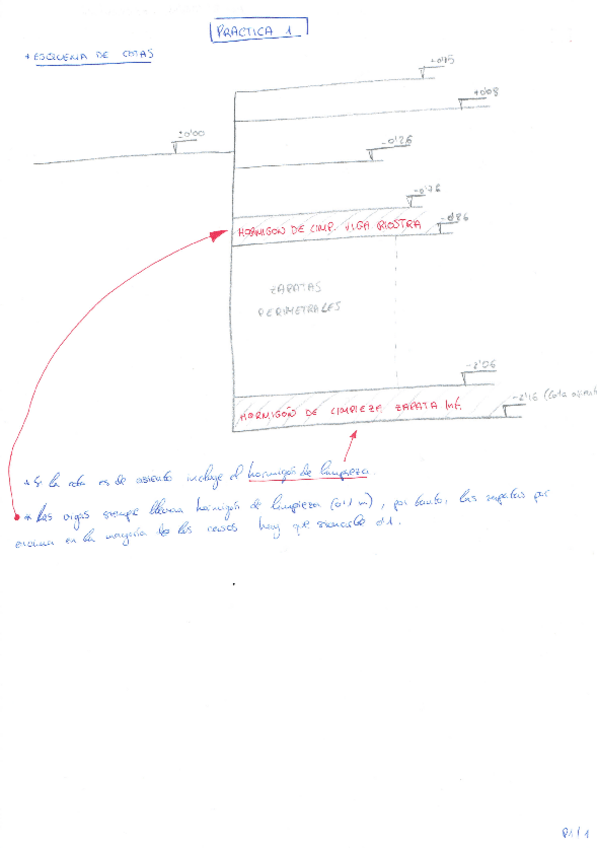 PRACTICA 1
* ESQUEMA DE COTAS
+0'15
+0'08
±0'00
-0'26
-0'76
-0'86
HORMIGÓN DE LIMP. VIGA RIOSTRA
ZAPATAS
PERIMETRALES
-2'06
-2'16 (Cota
HORMIGÓN DE LIMPIEZA ZAPATA Inf.
* Si la cota es de asiento incluye el hormigón de limpieza.
* Las vigas siempre llevan hormigón de limpieza (0'1 m), por tanto, las zapatas por
encima en la mayoría de los casos hay que 0'1.
P1/1